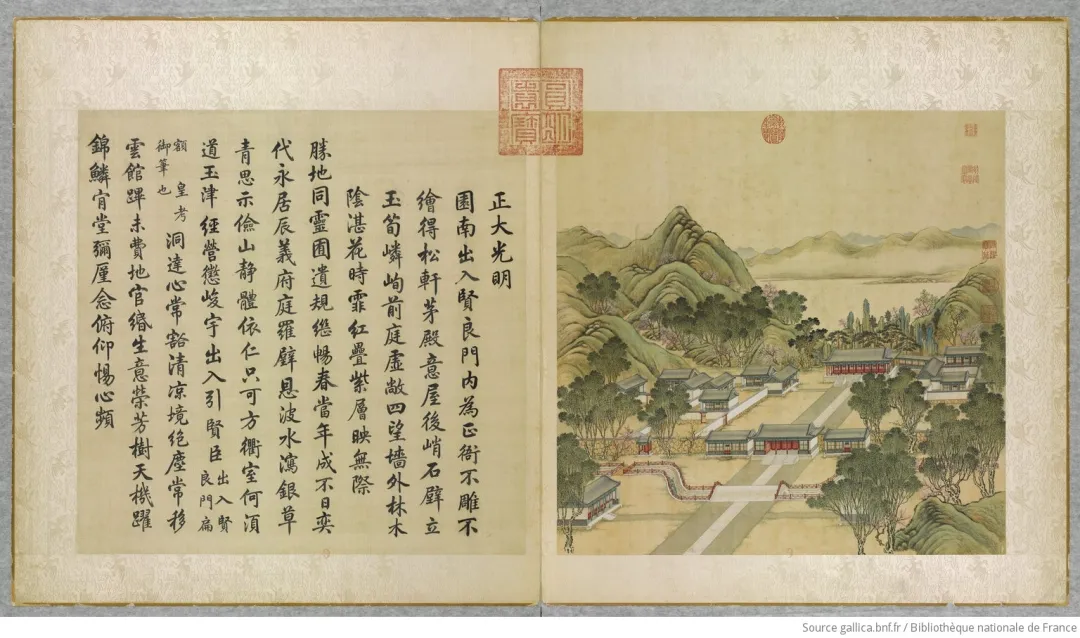 正大光明
園南出入賢良門內為正衙不雕不
繪得松軒茅殿意屋後峭石壁立
玉筍嶙峋前庭虛敞四望墻外林木
陰湛花時霏紅疊紫層映無際
勝地同靈囿遺規繼暢春當年成不日奕
代永居辰義府庭羅璧恩波水瀉銀草
青思示儉山靜體依仁只可方衢室何須
道玉津經營懲峻宇出入引賢臣出入賢良門扁
額皇考御筆也洞達心常豁清涼境絕塵常移
雲館蹕未費地官緡生意榮芳樹天機躍
錦鱗肯堂彌厪念俯仰惕心頻
Source gallica.bnf.fr / Bibliothèque nationale de France